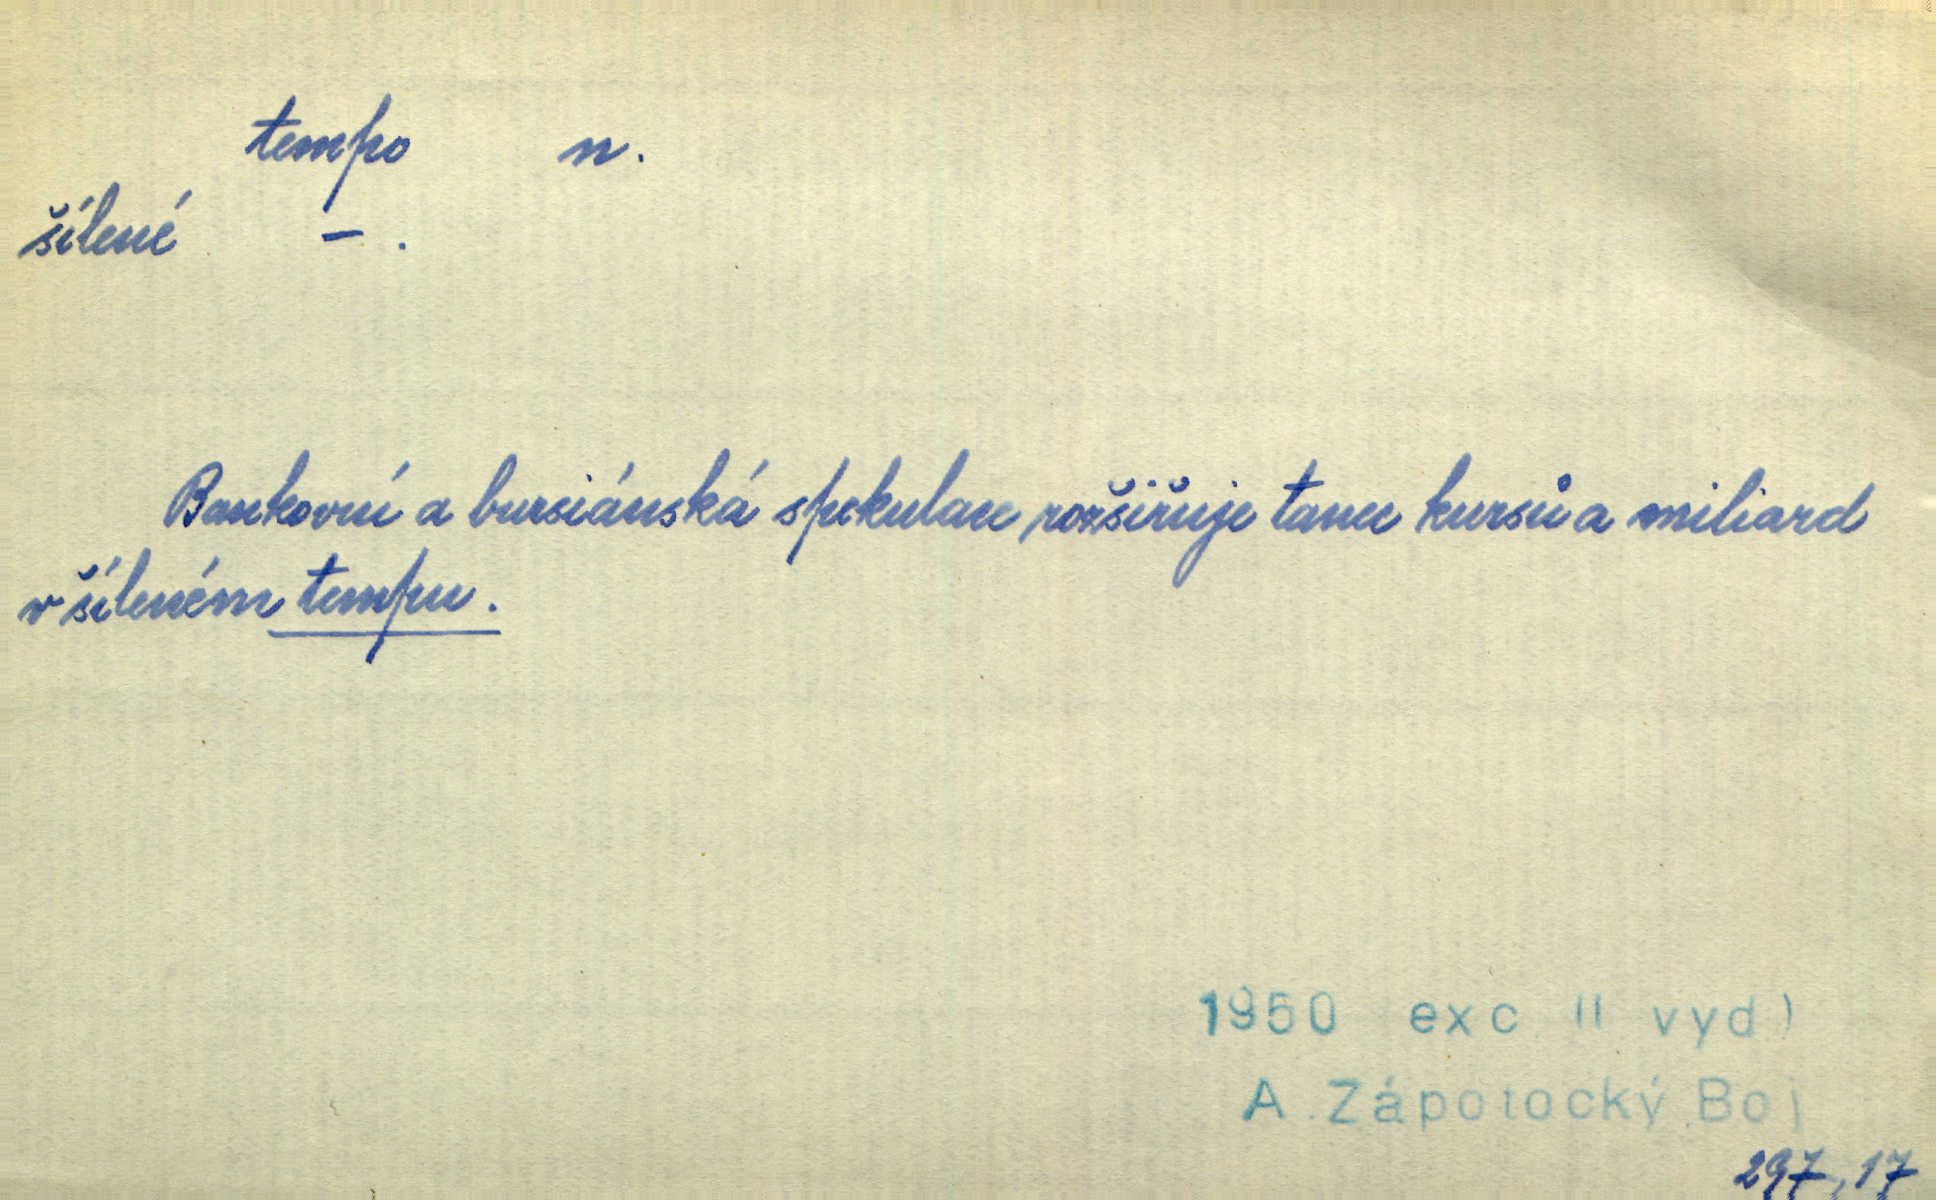 tempo n.
šílené – .
Bankovní a bursiánská spekulace rozšiřuje tanec kursů a miliard
v šíleném tempu.
1950 exc II vyd)
A. Zápotocký, Boj
297, 17